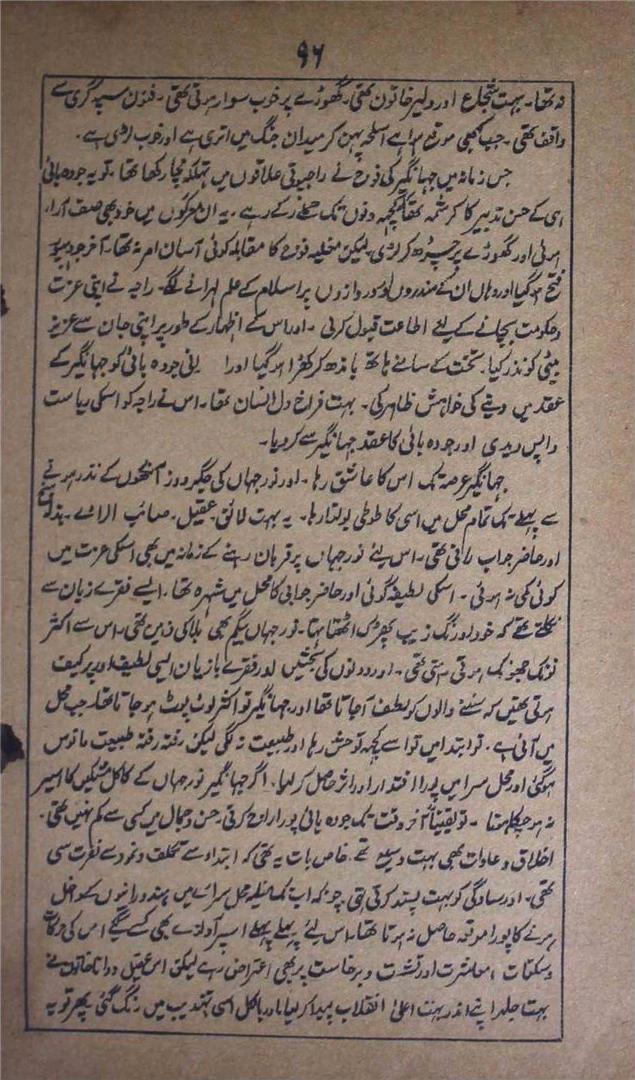 ۹۶
نہ تھا۔ بہت شجاع اور دلیر خاتون تھی۔ گھوڑے پر خوب سوار ہوتی تھی۔ فنون سپہ گری سے
واقف تھی۔ جب کبھی موقع ہوا ہے اسلحہ پہن کر میدان جنگ میں اتری ہے اور خوب لڑی ہے۔
جس زمانہ میں جہانگیر کی فوج نے راجپوتی علاقوں میں تہلکہ مچا رکھا تھا۔ تو یہ جودھ بائی
ہی کے حسن تدبیر کا کرشمہ تھا کہ کچھ دنوں تک حملے رکے رہے۔ یہ ان معرکوں میں خود بھی صف آراء
ہوئی اور گھوڑے پر چڑھ کر لڑی۔ لیکن مغلیہ فوج کا مقابلہ کوئی آسان امر نہ تھا۔ آخر جودھپور
فتح ہو گیا اور وہاں ان کے مندروں اور دروازوں پر اسلام کے علم لہرانے لگے۔ راجہ نے اپنی عزت
و حکومت بچانے کے لئے اطاعت قبول کر لی۔ اور اس کے اظہار کے طور پر اپنی جان سے عزیز
بیٹی کو نذر کیا۔ تخت کے سامنے ہاتھ باندھ کر کھڑا ہو گیا اور ا نی جودہ بائی کو جہانگیر کے
عقد میں دینے کی خواہش ظاہر کی۔ بہت فراخ دل انسان تھا۔ اس نے راجہ کو اسکی ریاست
واپس دیدی اور جودہ بائی کا عقد جہانگیر سے کر دیا۔
جہانگیر عرصہ تک اس کا عاشق رہا۔ اور نور جہاں کی جگر دوز آنکھوں کے نذر ہونے
سے پہلے تک تمام محل میں اسی کا طوطی بولتا رہا۔ یہ بہت لائق۔ عقیل۔ صائب الرائے۔ بذلہ سنج
اور حاضر جواب رانی تھی۔ اس لئے نور جہاں پر قربان رہنے کے زمانہ میں بھی اسکی عزت میں
کوئی کمی نہ ہوئی۔ اسکی لطیفہ گوئی اور حاضر جوابی کا محل میں شہرہ تھا۔ ایسے فقرے زبان سے
نکلتے تھے کہ خود اورنگ زیب پھڑک اٹھتا تھا۔ نور جہاں بیگم بھی بلا کی ذہین تھی۔ اس سے اکثر
نوک جھونک ہوتی رہتی تھی۔ اور دونوں کی بحثیں اور فقرے بازیاں ایسی لطیف اور پر کیف
ہوتی تھیں کہ سننے والوں کو لطف آجاتا تھا اور جہانگیر تو اکثر لوٹ پوٹ ہو جاتا تھا۔ جب محل
میں آئی ہے۔ تو ابتدا میں تو اسے کچھ توحش رہا اور طبیعت نہ لگی لیکن رفتہ رفتہ طبیعت مانوس
ہو گئی اور محل سرا میں پورا اقتدار اور اثر حاصل کر لیا۔ اگر جہانگیر نور جہاں کے کاکل مشکیں کا اسیر
نہ ہو چکا ہوتا۔ تو یقیناً آخر وقت تک جودہ بائی پورا راج کرتی۔ حسن و جمال میں کسی سے کم نہیں تھی۔
اخلاق و عادات بھی بہت وسیع تھے۔ خاص بات یہ تھی کہ ابتدا سے تکلف و نمود سے نفرت سی
تھی۔ اور سادگی کو بہت پسند کرتی تھی۔ چونکہ اب تک مغلیہ محل سرائے میں ہندو رانیوں کے دخل
ہونے کا پورا موقعہ حاصل نہ ہوتا تھا۔ اس لئے پہلے پہلے اسپر آوازے بھی کسے گئے اس کی حرکات
و سکنات، معاشرت اور نشست و برخاست پر بھی اعتراض رہے لیکن اس عقیل و دانا خاتون نے
بہت جلد اپنے اندر بہت اعلیٰ انقلاب پیدا کر لیا۔ اور بالکل اسی تہذیب میں رنگ گئی پھر تو یہ